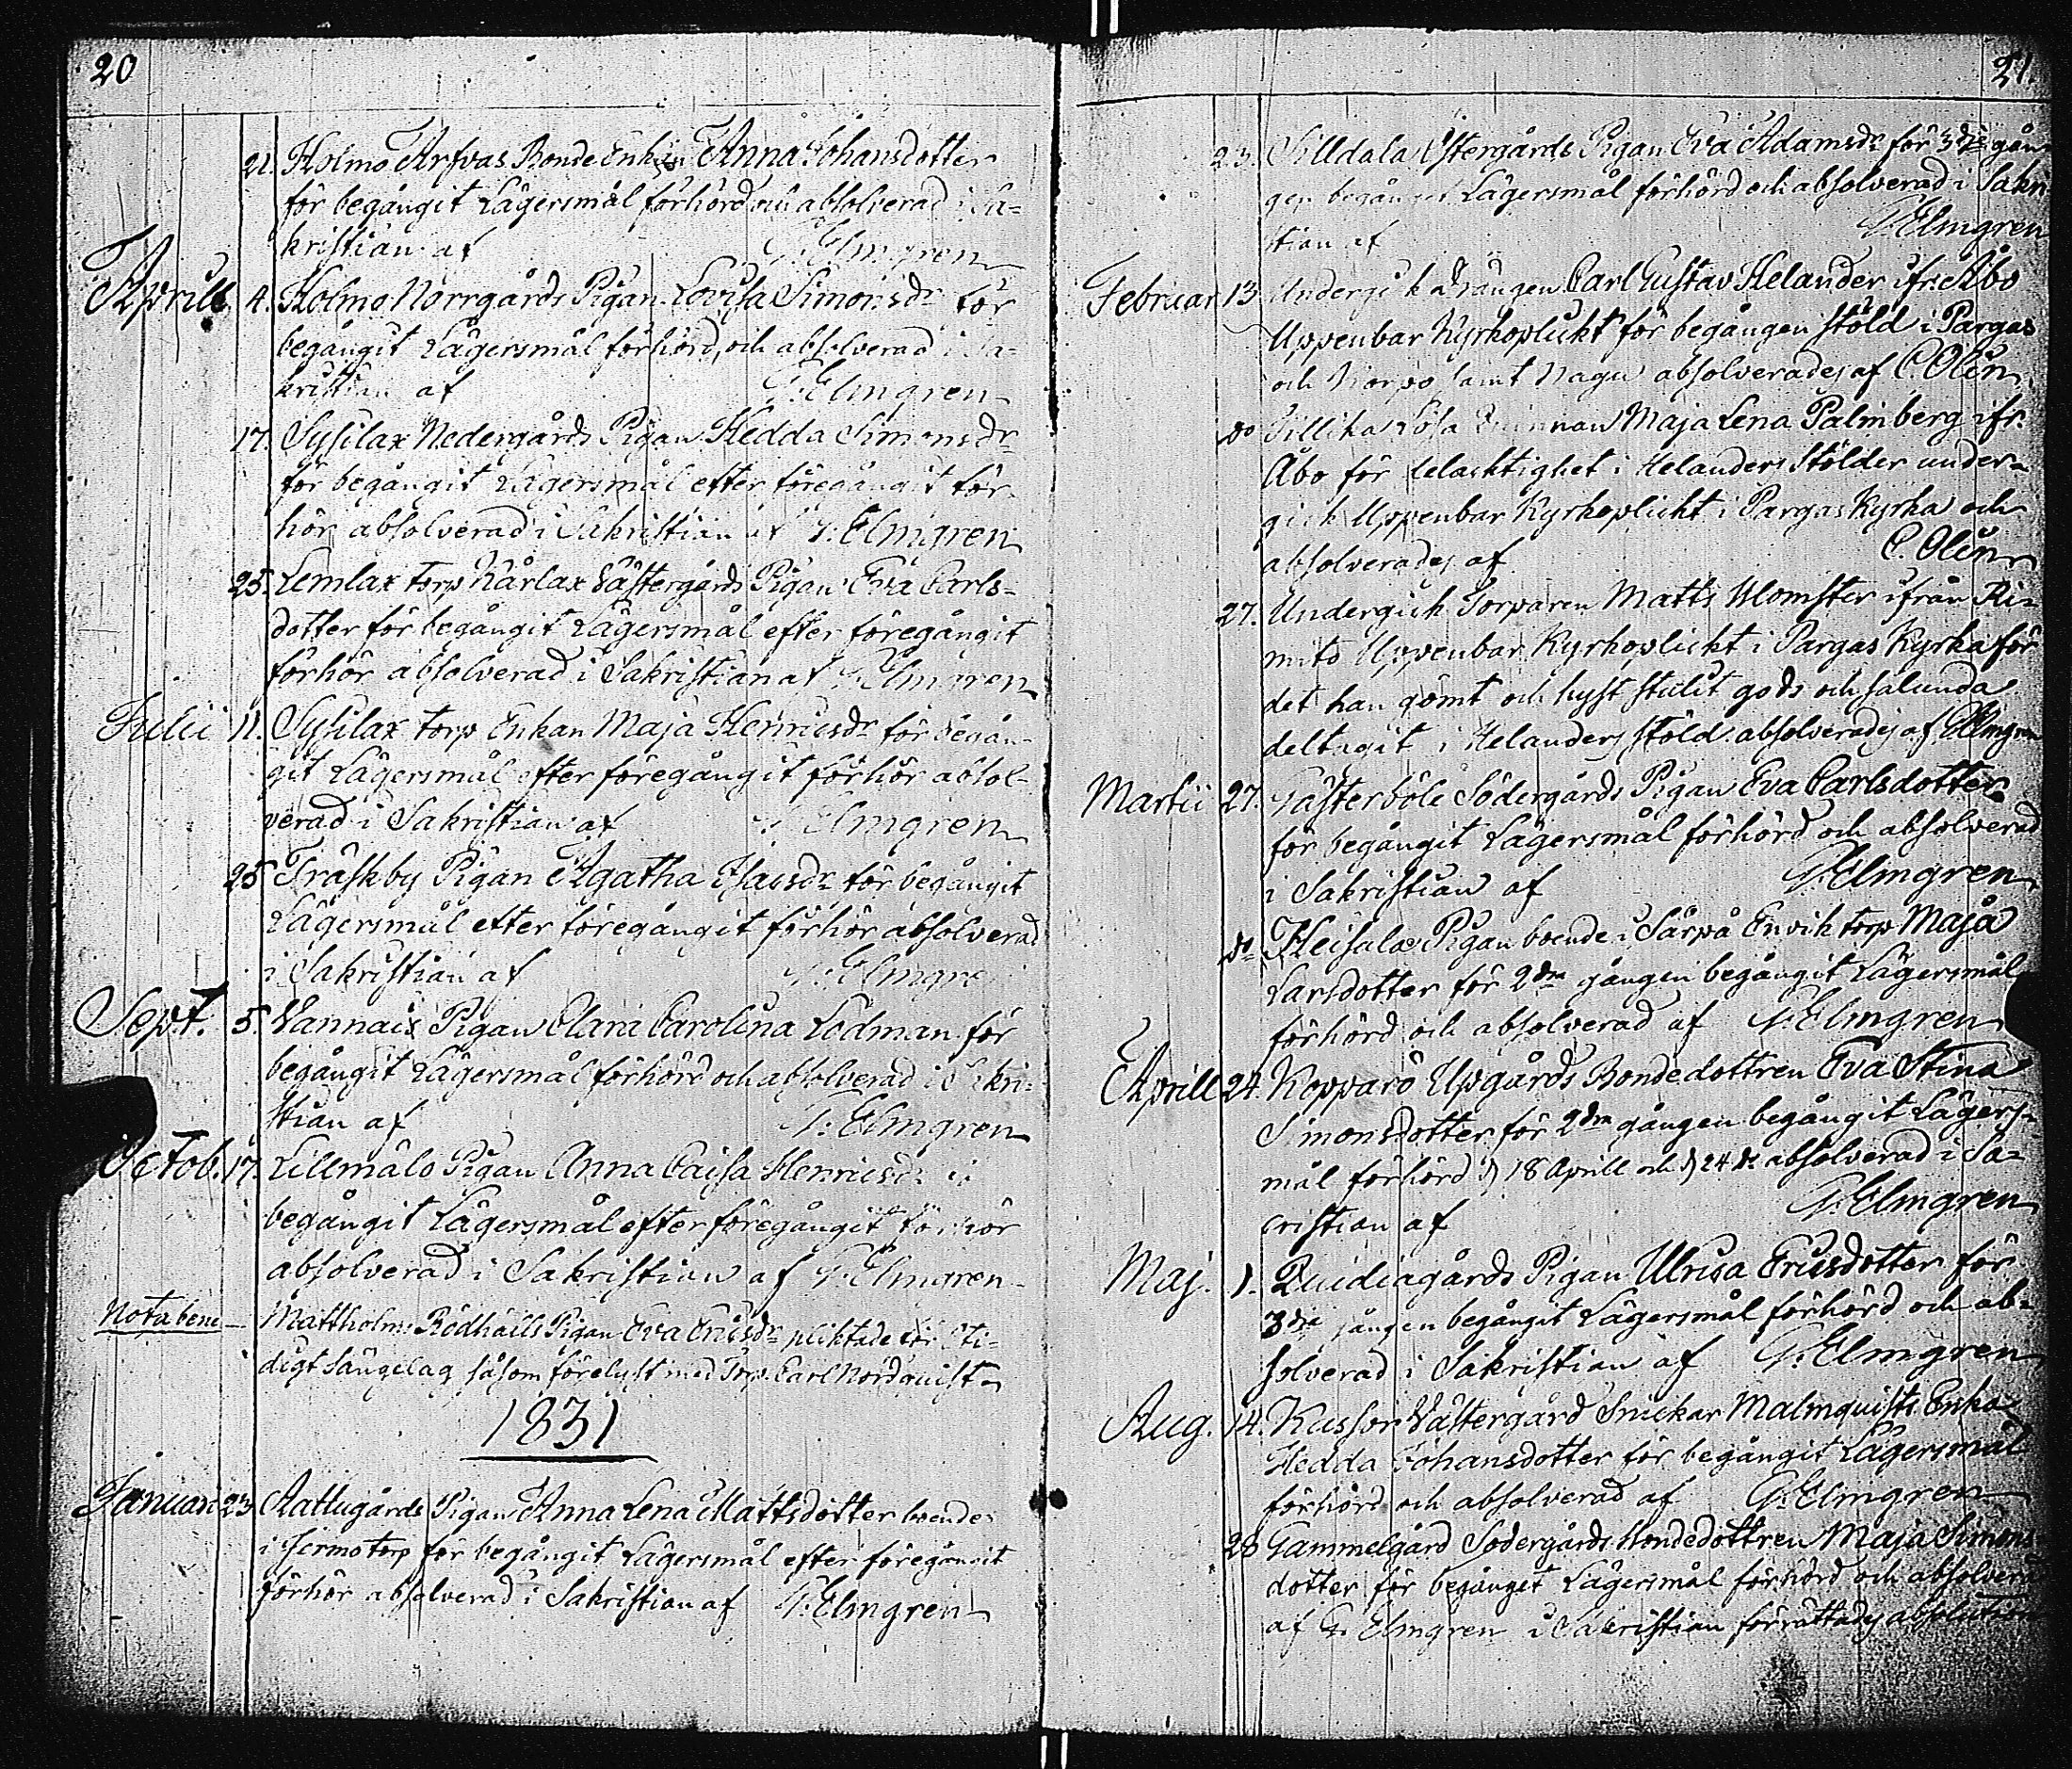 20
21. Holmo Arfvas Bonde Enkan Anna Johansdotter
för begångit Lägersmål förhörd och absolverad i Sa=
kristian af G: Elmgren
Aprill 4. Holmo Norrgårds Pigan Lovisa Simonsdr för
begångit Lägersmål förhörd, och absolverad i Sa=
kristian af G: Elmgren
17. Sysilax Nedergårds Pigan Hedda Simonsdr
för begångit Lägersmål efter föregångit för-
hör absolverad i Sakristian af G: Elmgren
25. Lemlax torp Kårlax Västergårds Pigan Eva Carls=
dotter för begångit Lägersmål efter föregångit
förhör absolverad i Sakristian af G: Elmgren
Julii 11. Sysilax torp Enkan Maja Henricsdr för begån-
git Lägersmål efter föregångit förhör absol-
verad i Sakristian af G: Elmgren
25 Träskby Pigan Agatha Isacsdr för begångit
Lägersmål efter föregångit förhör absolverad
i Sakristian af G: Elmgren
Sept. 5. Vannais Pigan Clara Carolina Lodman för
begångit Lägersmål förhörd och absolverad i Sakri=
stian af G: Elmgren
Octob. 17. Lillmälö Pigan Anna Caisa Henricsdr
begångit Lägersmål efter föregångit förhör
absolverad i Sakristian af G: Elmgren
Nota bene — Mattholms Rödhälls Pigan Eva Ericsdr pliktade för Oti=
digt Sängelag såsom förelyst med Torp. Carl Nordquist
1831
Januari 23 Aatlugårds Pigan Anna Lena Mattsdotter boende
i Jermo torp för begångit Lägersmål efter föregångit
förhör absolverad i Sakristian af G: Elmgren
21.
23. Silldala Östergårds Pigan Eva Adamsdr för 3die gån
gen begångit Lägersmål förhörd och absolverad i Sakri
stian af G: Elmgren
Februar 13 Undergick Drängen Carl Gustav Helander ifr. Åbo
Uppenbar Kyrkoplickt för begången stöld i Pargas
och Korpo samt Nagu absolverades af C. Olin
do Lösa Quinnan Maja Lena Palmberg ifr.
Åbo för delacktighet i Helanders Stölder under-
gick Uppenbar Kyrkoplickt i Pargas Kyrka och
absolverades af C. Olin
27. Undergick Torparen Matts Blomster ifrån Ri=
mito Uppenbar Kyrkoplickt i Pargas Kyrka för
det han gömt och hyst stulit gods och sålunda
deltagit i Helanders stöld absolverades af G Elmgren
Martii 27. Gästerböle Södergårds Pigan Eva Carlsdotter
för begångit Lägersmål förhörd och absolverad
i Sakristian af G: Elmgren
do Heisala Pigan boende i Särpä Envik torp Maja
Carlsdotter för 2dra gången begångit Lägersmål
förhörd och absolverad af G: Elmgren
Aprill 24. Kopparö Upgårds Bondedottren Eva Stina
Simonsdotter för 2dra gången begångit Lägers-
mål förhörd d 18 Aprill och d 24 do absolverad i Sa=
cristian af G: Elmgren
Maj. 1. Quidiagårds Pigan Ulrica Ericsdotter för
3die gången begångit Lägersmål förhörd och ab=
solverad i Sakristian af G: Elmgren
Aug. 14. Kussor Västergård Snickar Malmquists Enka
Hedda Johansdotter för begångit Lägersmål
förhörd och absolverad af G: Elmgren
28 Gammelgård Södergårds Bondedottren Maja Simons
dotter för begånget Lägersmål förhörd och absolvera
af G: Elmgren i Sakristian förrättades absolution